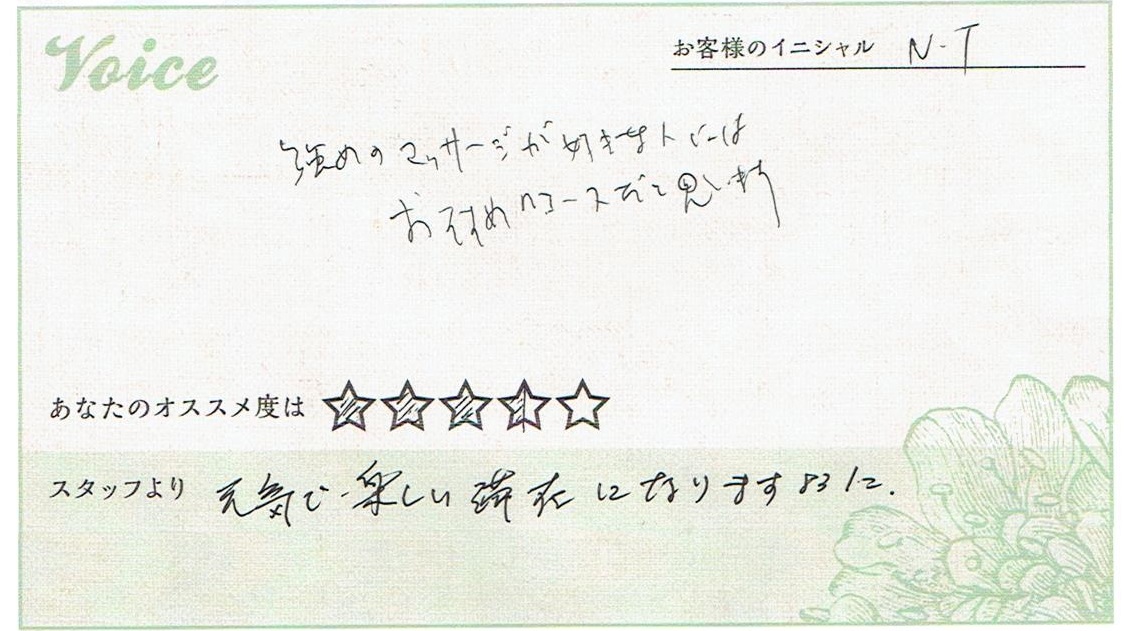 Voice
お客様のイニシャル N-T
強めのマッサージが好きな人には
おすすめのコースだと思います
あなたのオススメ度は ☆☆☆☆☆
スタッフより 元気で楽しい滞在になりますように.